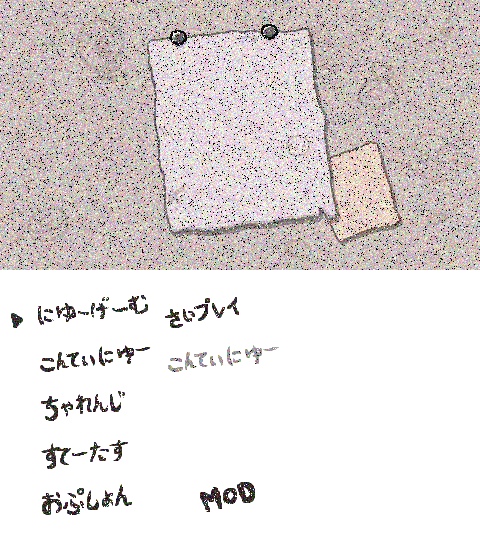 にゅーげーむ さいプレイ
こんてぃにゅー こんてぃにゅー
ちゃれんじ
すてーたす
おぷしょん MOD